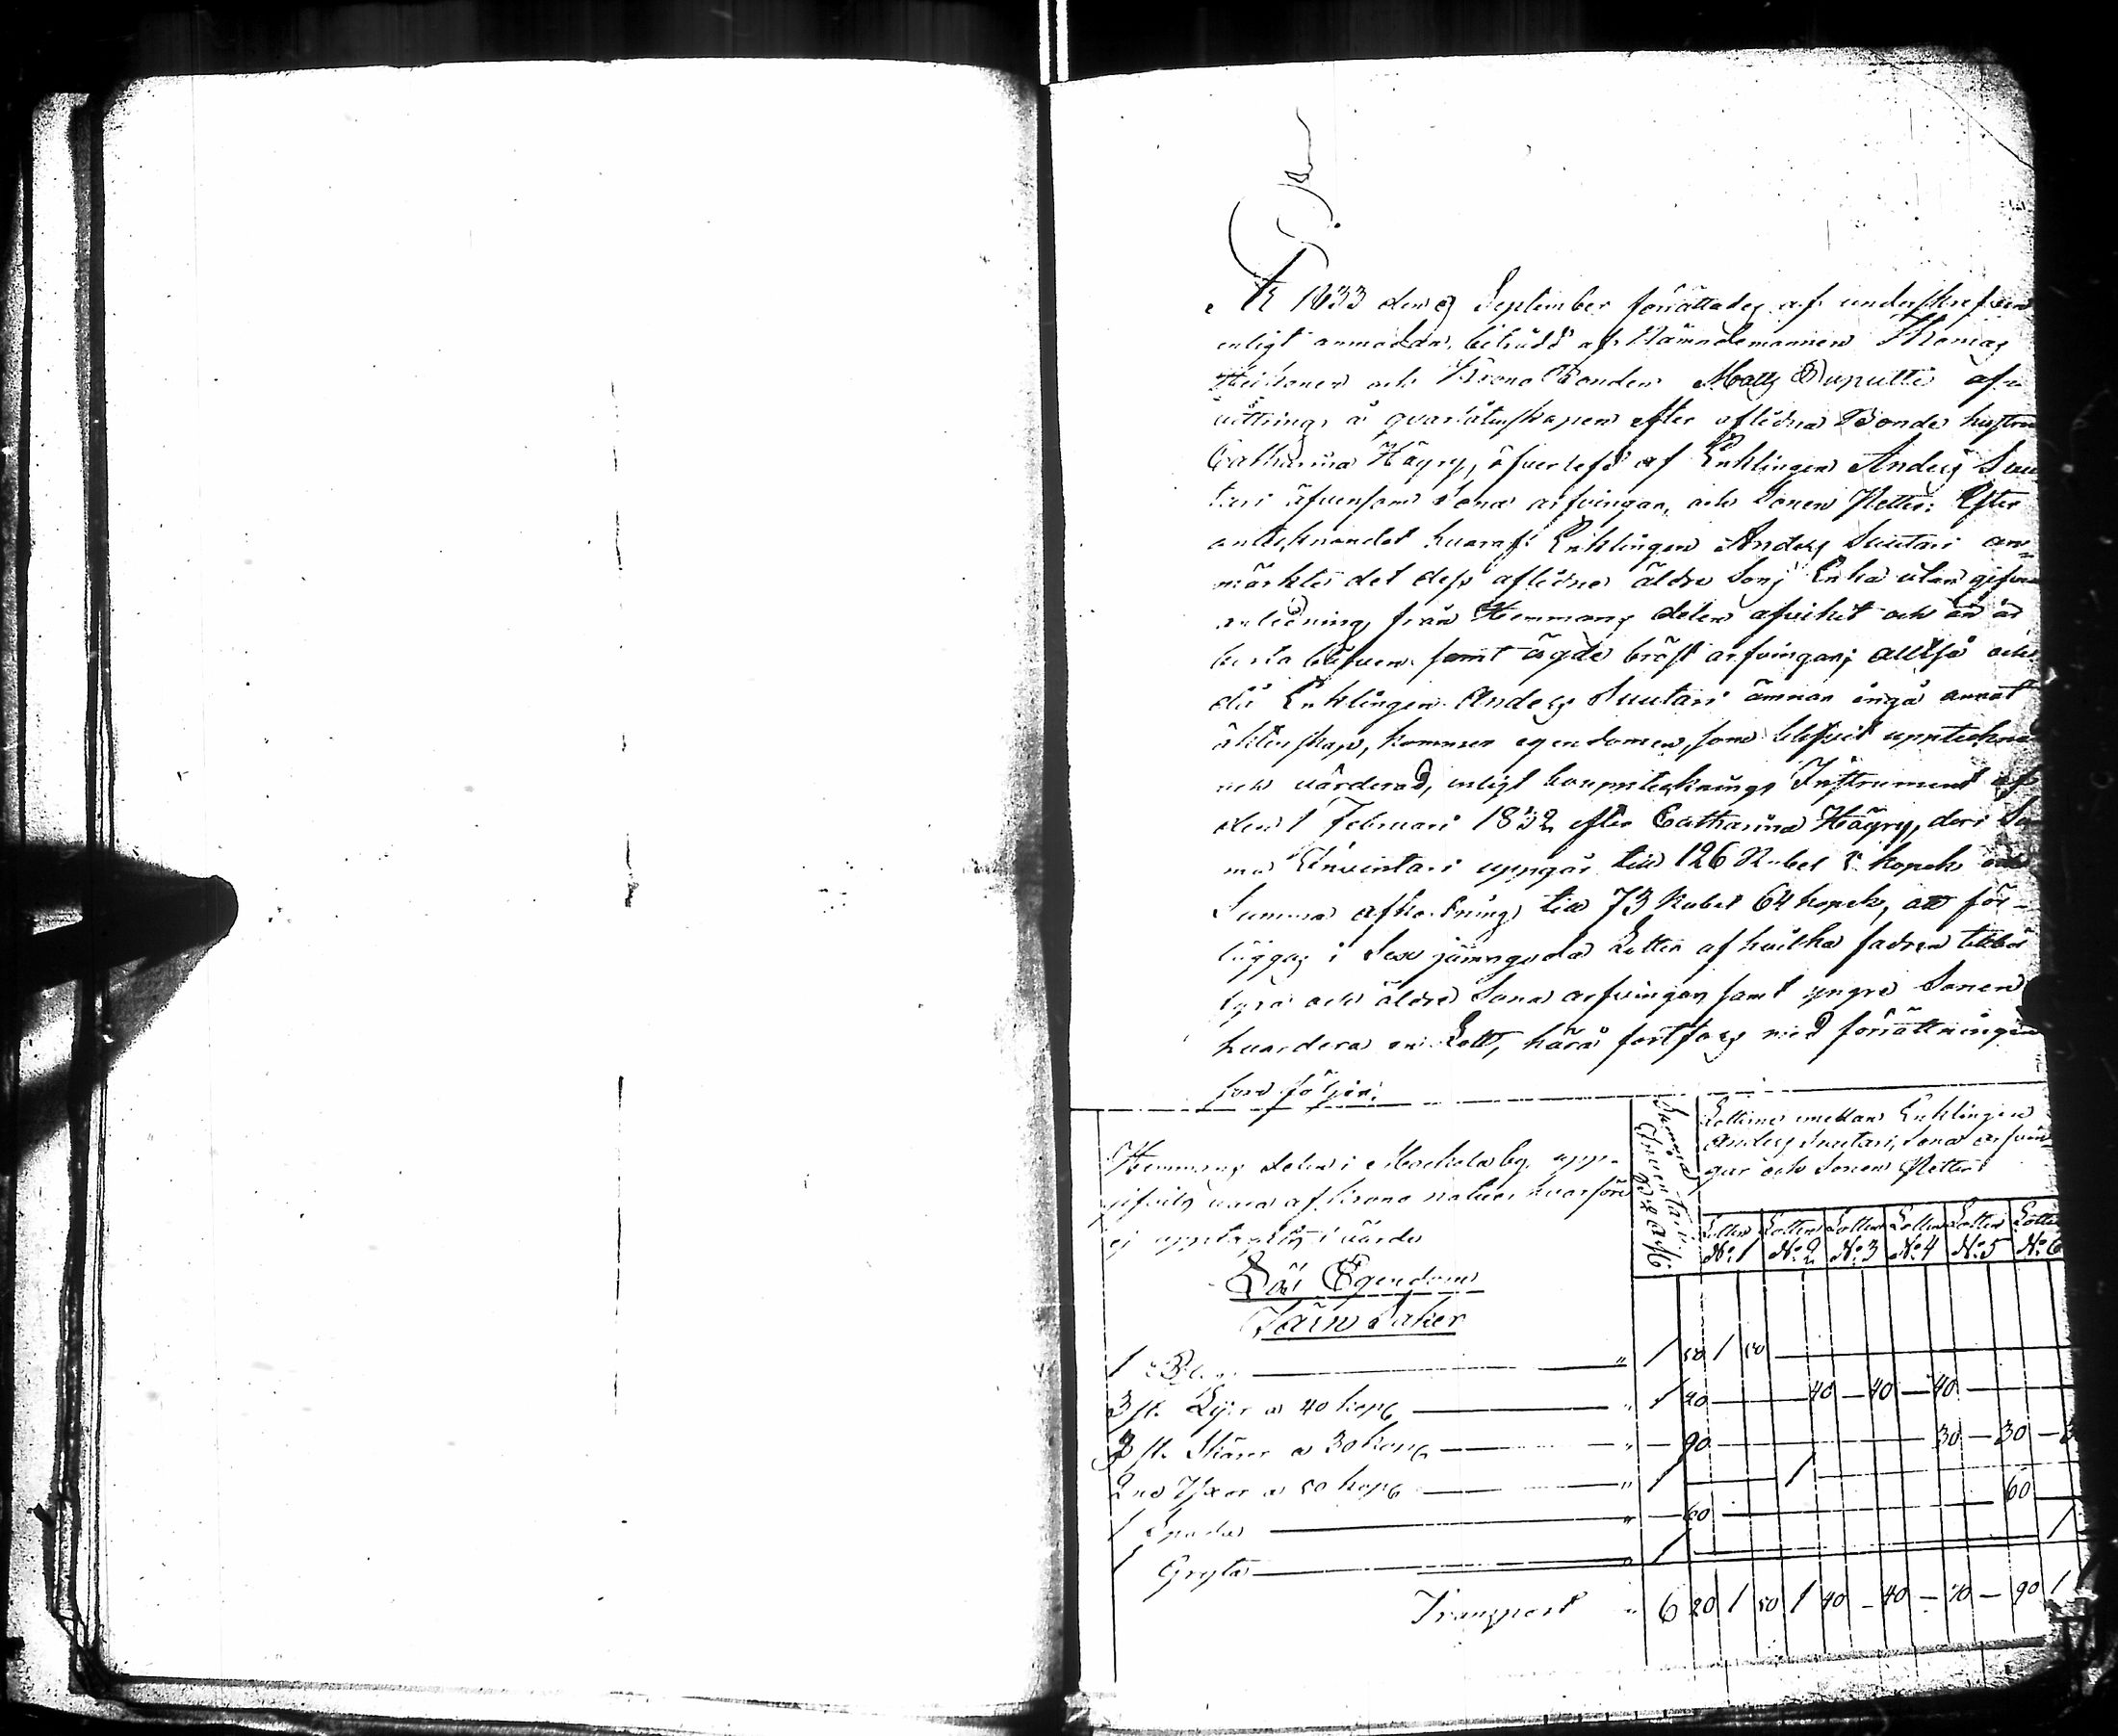 År 1833 den 9 September förrättades af underskrefven
enligt anmodan, biträdd af Nämndemannen Thomas
och Krono Bonden Matts af
vittring å qvarlåtenskapen efter aflidna Bonde hustru
Catharina Hägry, öfverlefd af Enklingen Anders Suu
tari äfvensom Sona arfvingar, och Sonen Petter: Efter
antecknandet hvaraf Enklingen Anders Suutari an=
märkte det dess aflidne äldre Sons Enka utan gifven
anledning från Hemmans delen afvikit och än är
borta blifven samt ägde bröst arfvingar; alltså och
då Enklingen Anders Suutari ämnar ingå annat
äktenskap, kommer egendomen, som blifvit upptecknad
och värderad, enligt bouppteknings Instrument af
den 1 Februari 1832 efter Catharina Hägry, deri Su
ma Inventari uppgår till 126 Rubel kopek och
Summa afkortning till 73 Rubel 64 kopek, att för-
läggas i Sex jämngoda Lotter af hvilka fadren tillhör
fyra och äldre Sona arfvingar samt yngre Sonen
hvardera en Lott, härå fortfors med förrättningen
som följer:
Hemmans delen i by upp-
gifvits vara af Krono natur hvarföre
ej upptages i värde
Lös Egendom
Järn Saker
Summa Inventari
Lotterne emellan Enklingen
Anders Suutari, Sona arfvin-
gar och Sonen Petter
Lotten No 1 Lotten No 2 Lotten No 3 Lotten No 4 Lotten No 5 Lotten No 6
1 — " 1 50 1 50 —
3 st. Lijor a 40 kop — " 1 20 — 40 — 40 — 40 —
3 st. Skäror a 30 kop — " — 90 — 30 — 30 — 3
2ne Yxor a 50 kop — " 1 — 1 —
1 Spada — " — 60 — 60 —
1 Gryta — " 1 — 1
Transport " 6 20 1 50 1 40 — 40 — 70 — 90 1